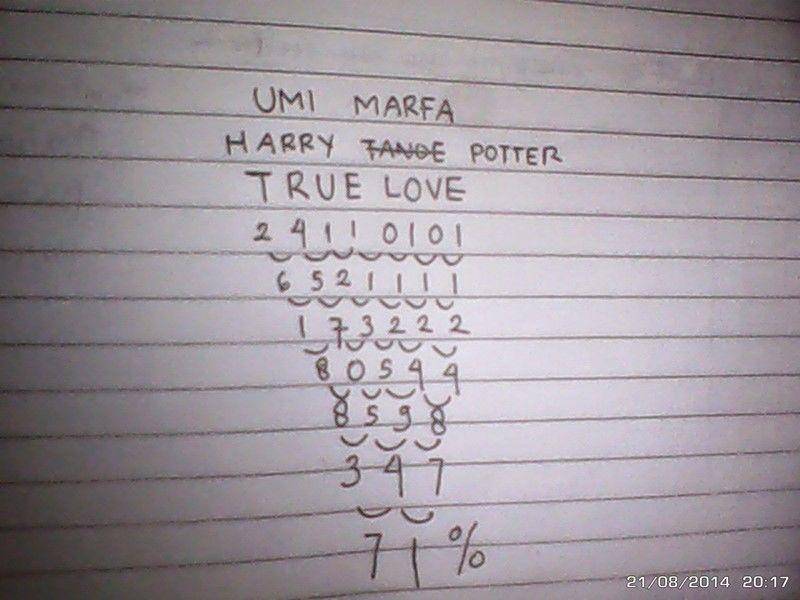 UMI MARFA
HARRY TANOE POTTER
TRUE LOVE
2 4 1 1 0 1 0 1
6 5 2 1 1 1 1
1 7 3 2 2 2
8 0 5 4 4
8 5 9 8
3 4 7
7 1 %
21/08/2014 20:17